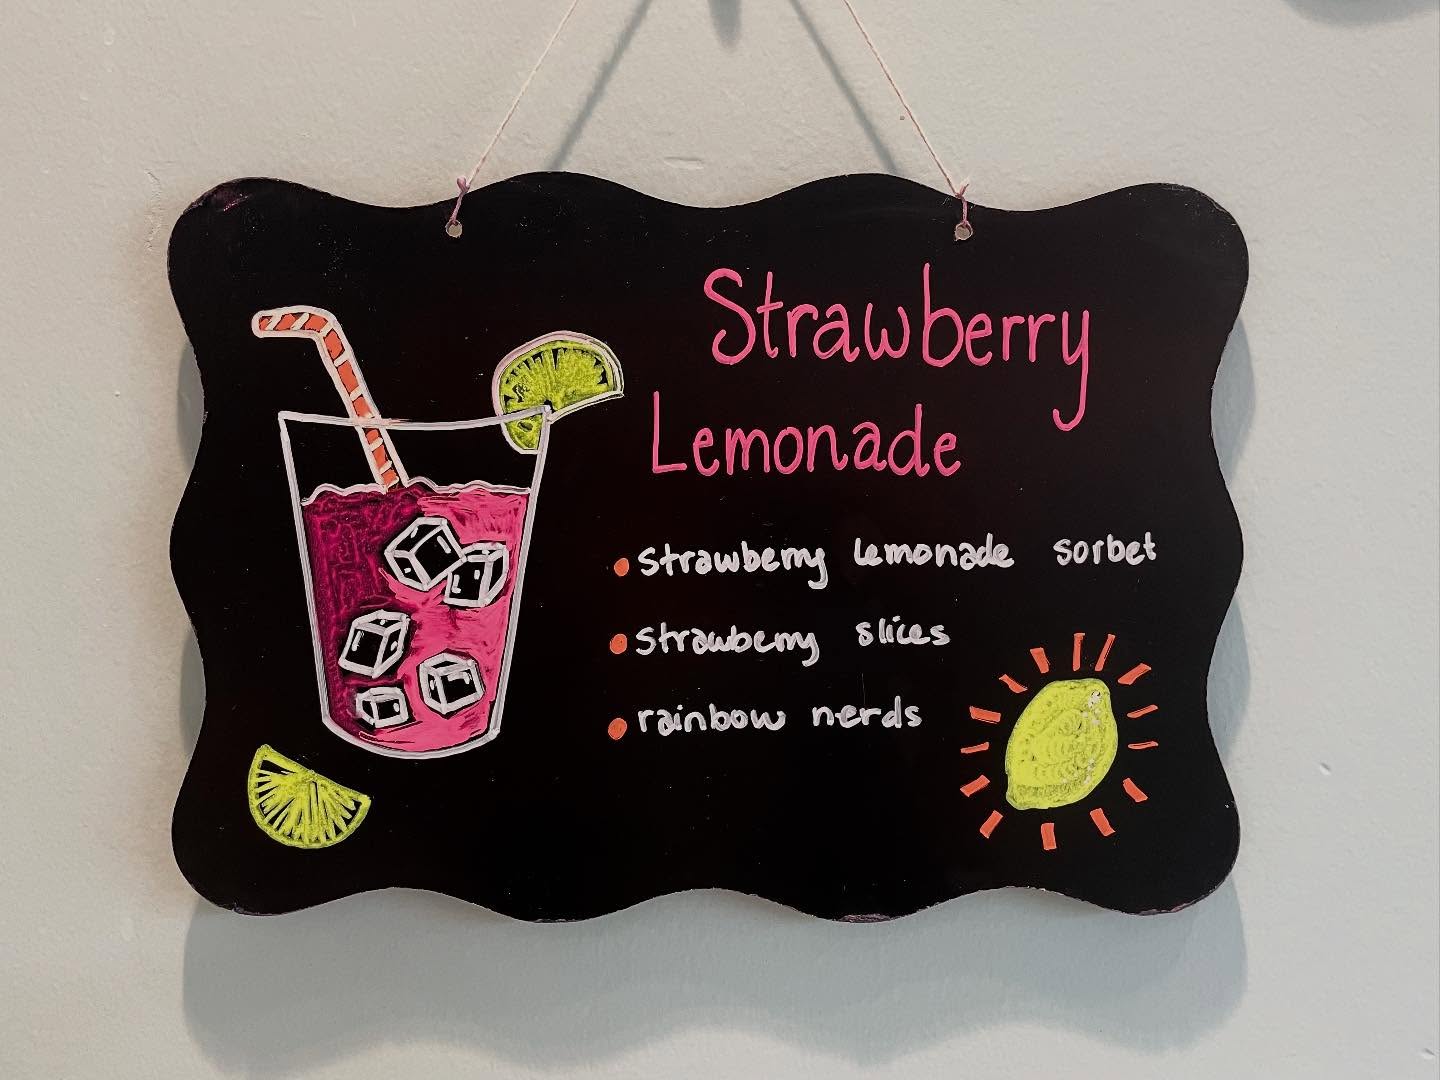 Strawberry
Lemonade
• strawberry lemonade sorbet
• strawberry slices
• rainbow nerds